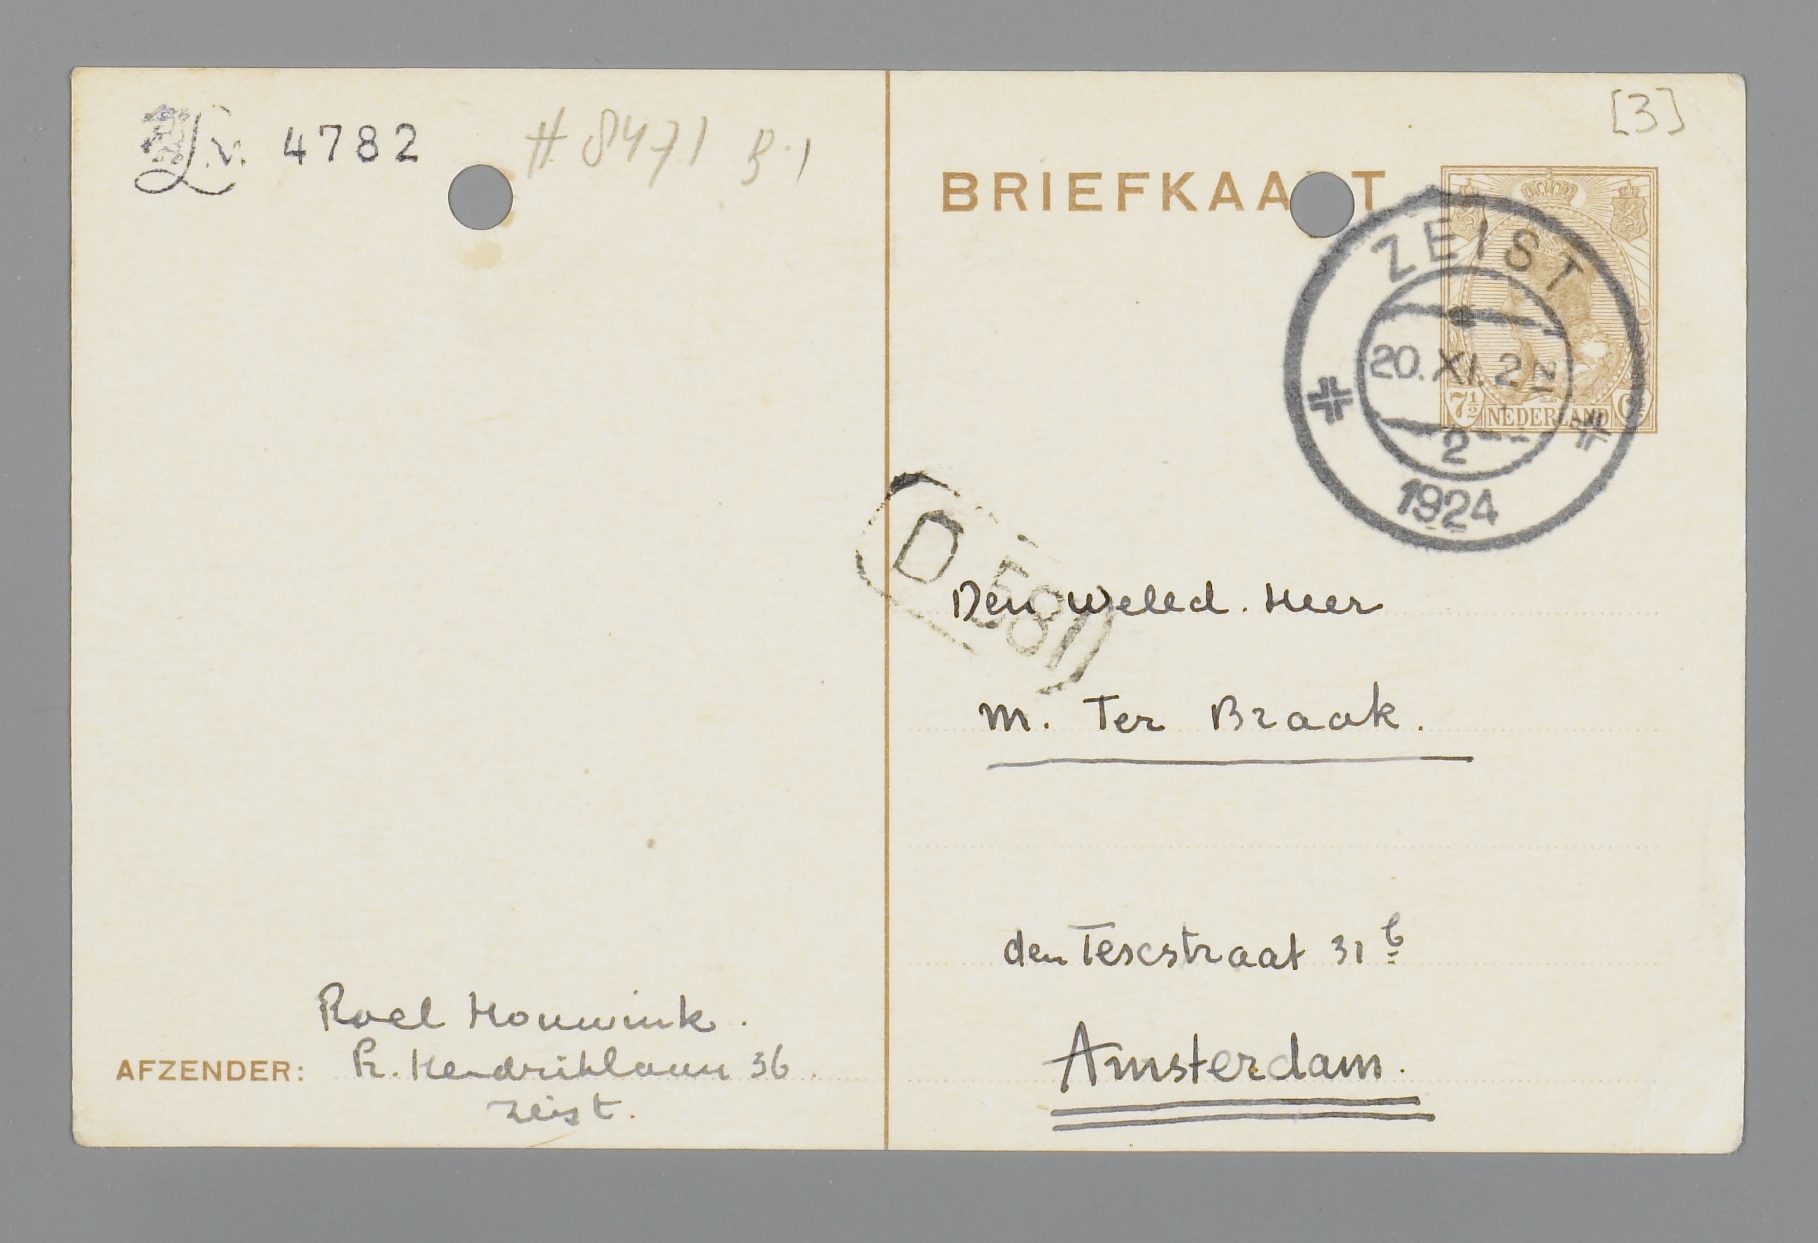 L.M. 4782
# 8471 B.1
[3]
BRIEFKAART
ZEIST
20.XI.2
N
2
1924
7½ NEDERLAND C
D 581
Den Weled. Heer
M. Ter Braak.
den Texstraat 31 b
Amsterdam.
Roel Houwink.
AFZENDER: Pr. Hendriklaan 36.
Zeist.